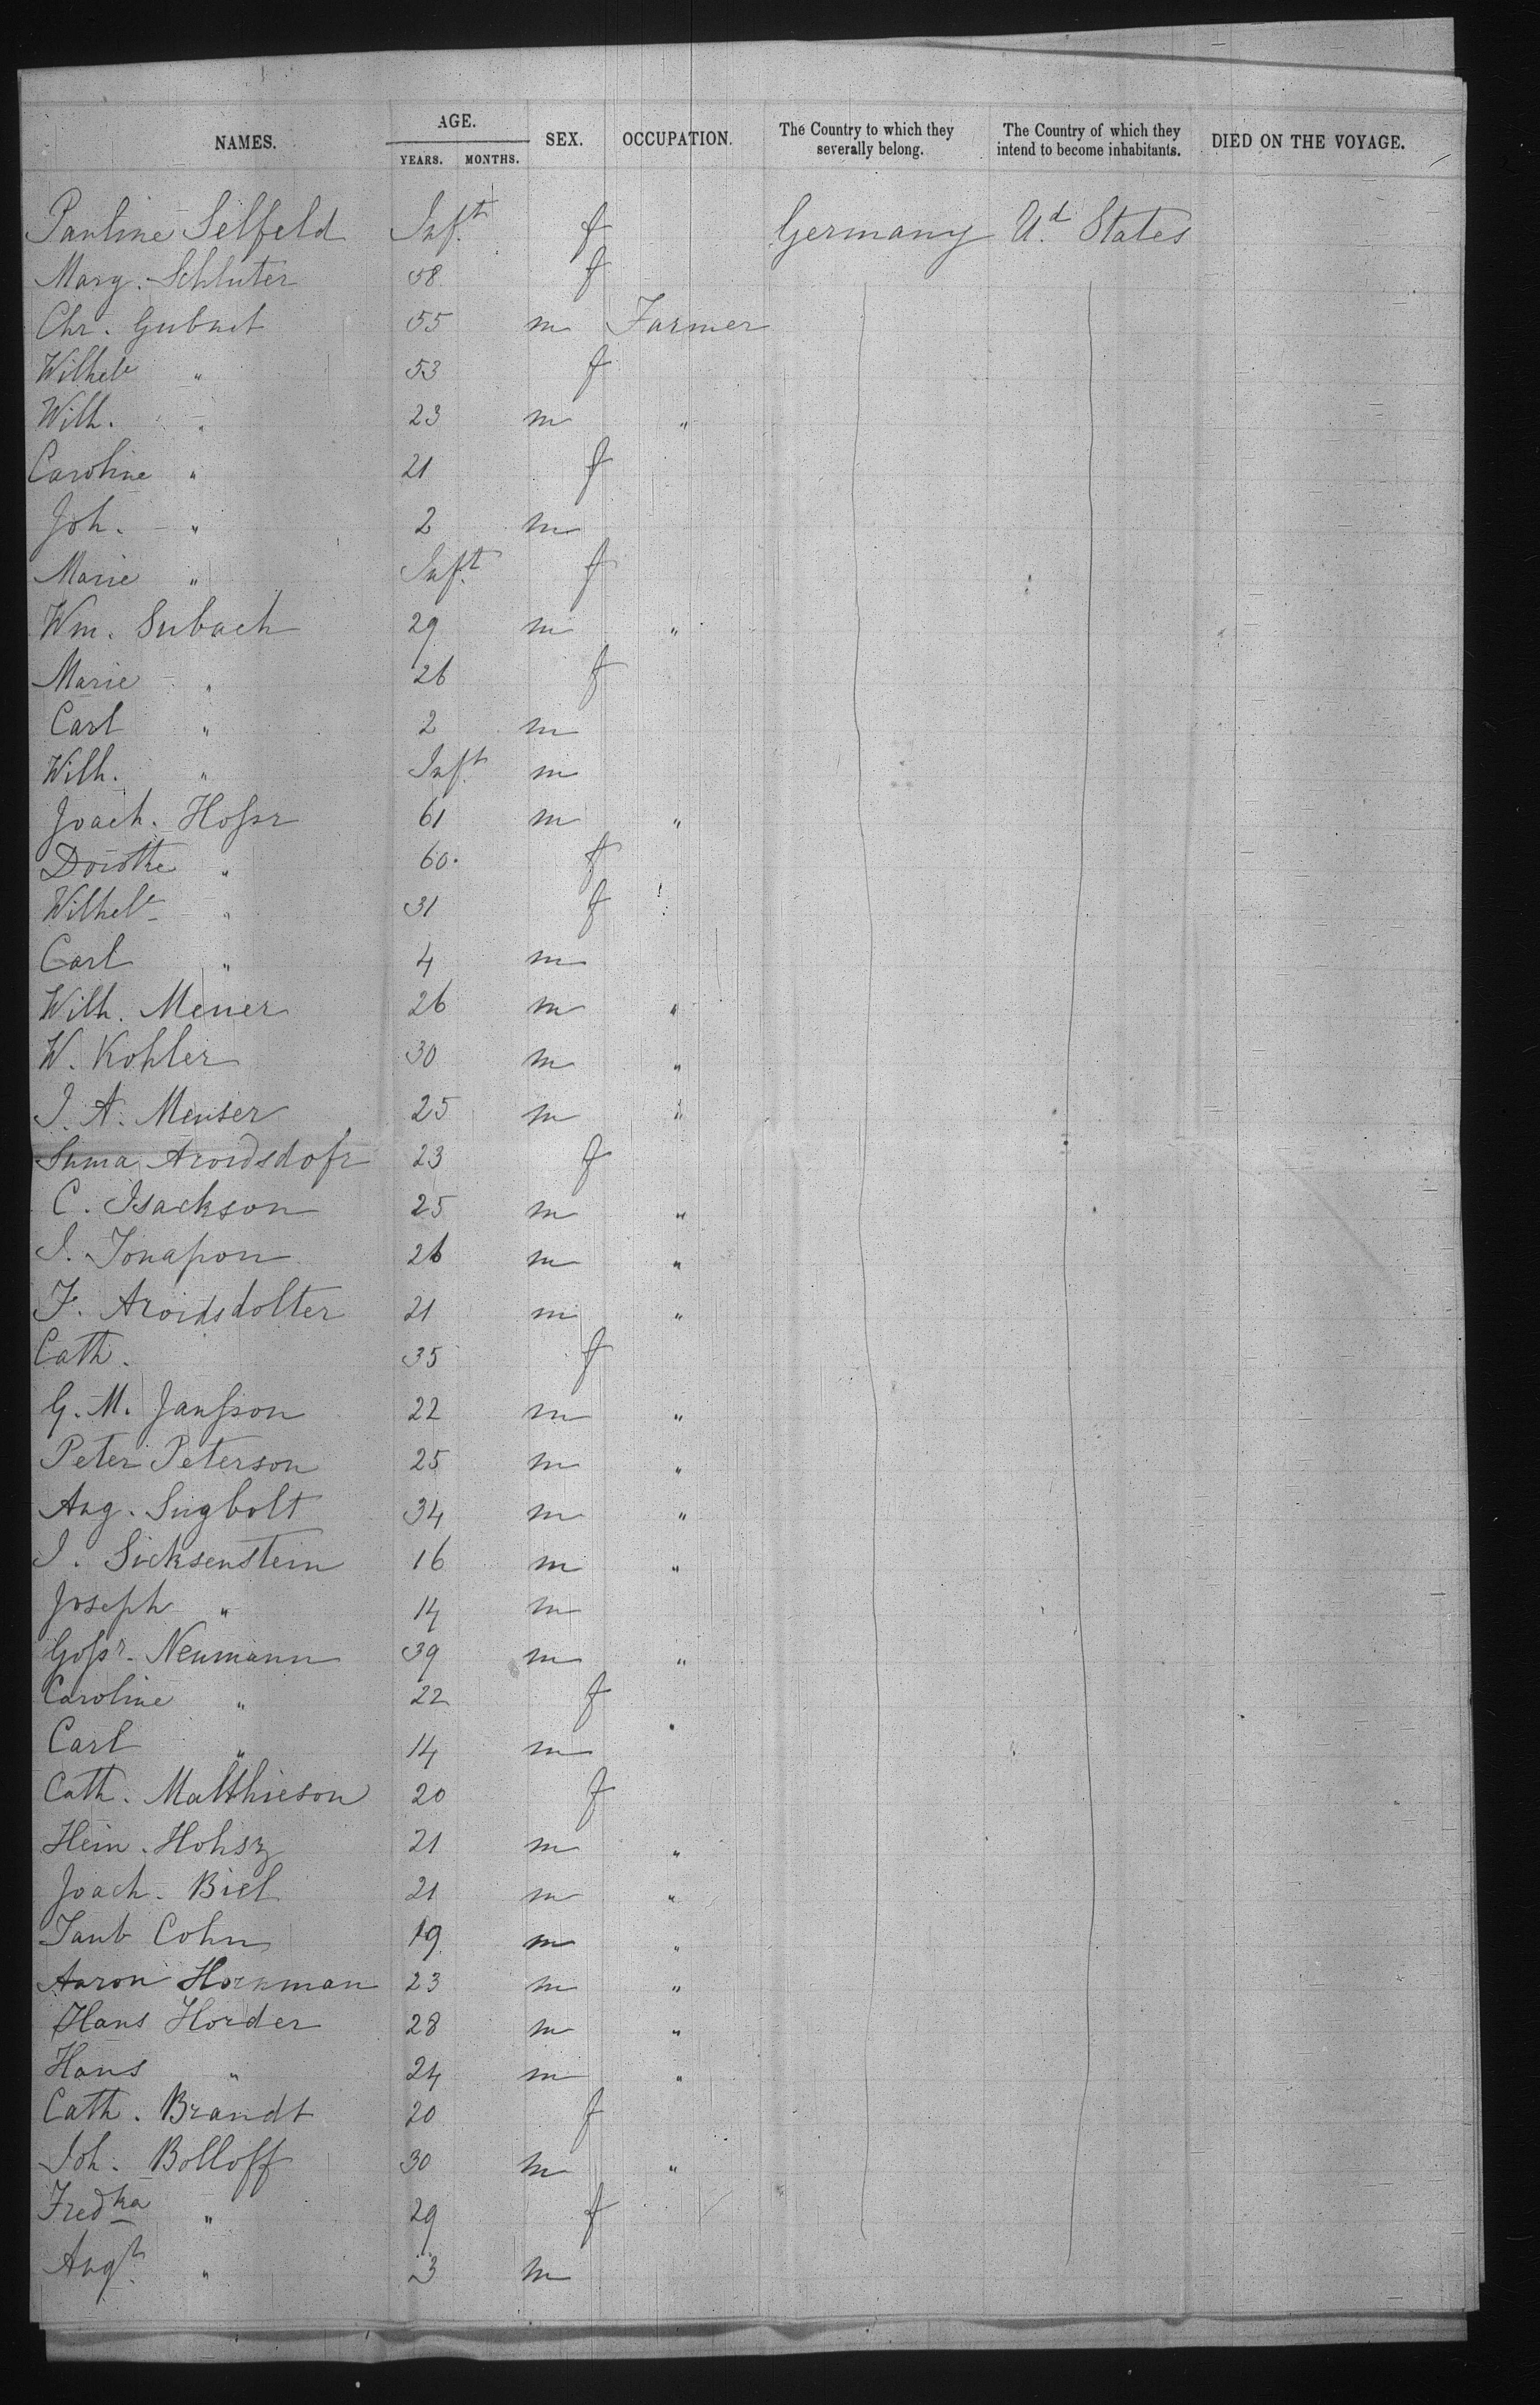 NAMES. AGE. SEX. OCCUPATION. The Country to which they severally belong. The Country of which they intend to become inhabitants. DIED ON THE VOYAGE.
YEARS. MONTHS.
Pauline Selfeld Inft. f Germany Ud. States
Marg. Schluter 58 f
Chr. Gubnet 55 m Farmer
Wilhele " 53 f
Wilh. " 23 m "
Caroline " 21 f
Joh. " 2 m
Marie " Inft. f
Wm. Subach 29 m "
Marie " 26 f
Carl " 2 m
Wilh. " Inft. m
Joach. 61 m "
Dorothe " 60. f
Wilhele " 31 f
Carl " 4 m
Wilh. Meuer 26 m "
W. Kohler 30 m "
J. A. Meuser 25 m "
23 f
C. Isackson 25 m "
J. Jonaſson 26 m "
F. Aroidsdolter 21 m "
Cath. 35 f
G. M. Janſson 22 m "
Peter Peterson 25 m "
Aug. Sugbolt 34 m "
J. Sicksenstein 16 m "
Joseph " 14 m
Neumann 39 m "
Caroline " 22 f
Carl " 14 m
Cath. Matthieson 20 f
Hein. Hohsz 21 m "
Joach. Biel 21 m "
Taub Cohn 19 m "
Aaron Horkman 23 m "
Hans Horder 28 m "
Hans " 24 m "
Cath. Brandt 20 f
Joh. Bolloff 30 m "
Fredka " 29 f
Augt. " 3 m